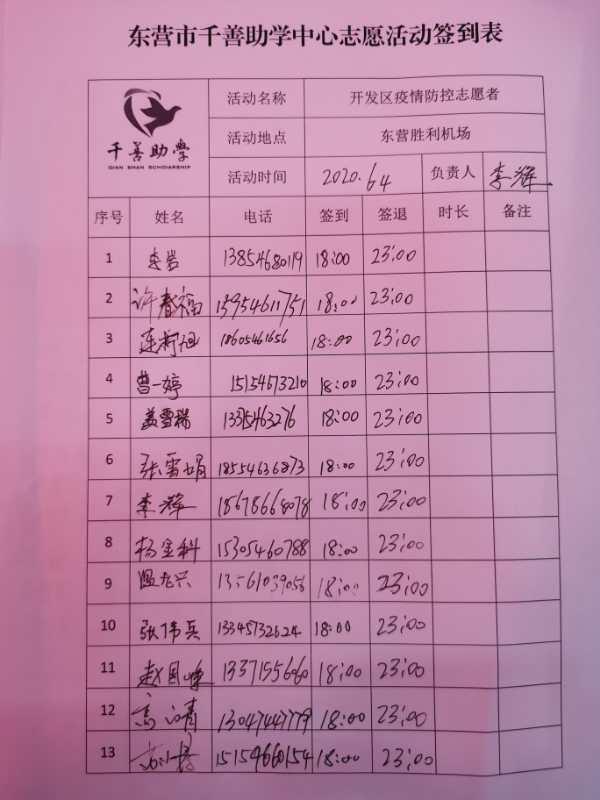 东营市千善助学中心志愿活动签到表
千善助學
QIAN SHAN SCHOLARSHIP
活动名称 开发区疫情防控志愿者
活动地点 东营胜利机场
活动时间 2020.6.4 负责人 李辉
序号 姓名 电话 签到 签退 时长 备注
1 李岩 13854680119 18:00 23:00
2 许春福 13954611751 18:00 23:00
3 18605461656 18:00 23:00
4 曹一婷 15154673210 18:00 23:00
5 盖雪瑞 18:00 23:00
6 张雪娟 18554636873 18:00 23:00
7 李辉 18678668078 18:00 23:00
8 杨金科 15305460788 18:00 23:00
9 13561039056 18:00 23:00
10 张伟兵 13345732624 18:00 23:00
11 赵国峰 18:00 23:00
12 13047447779 18:00 23:00
13 15154660154 18:00 23:00